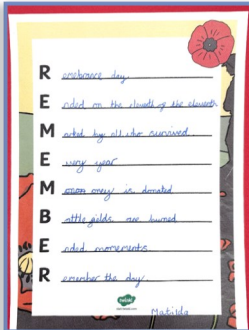 Remembrance day
Ended on the eleventh of the eleventh
Marked by all who survived
Every year
Money is donated
Battle fields are burned
Ended movements
Remember the day.
twinkl
Matilda